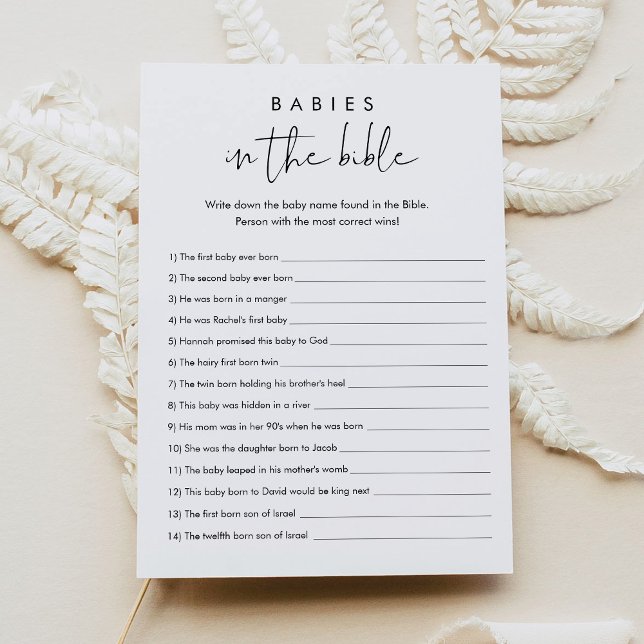 BABIES
in the bible
Write down the baby name found in the Bible.
Person with the most correct wins!
1) The first baby ever born
2) The second baby ever born
3) He was born in a manger
4) He was Rachel's first baby
5) Hannah promised this baby to God
6) The hairy first born twin
7) The twin born holding his brother's heel
8) This baby was hidden in a river
9) His mom was in her 90's when he was born
10) She was the daughter born to Jacob
11) The baby leaped in his mother's womb
12) This baby born to David would be king next
13) The first born son of Israel
14) The twelfth born son of Israel